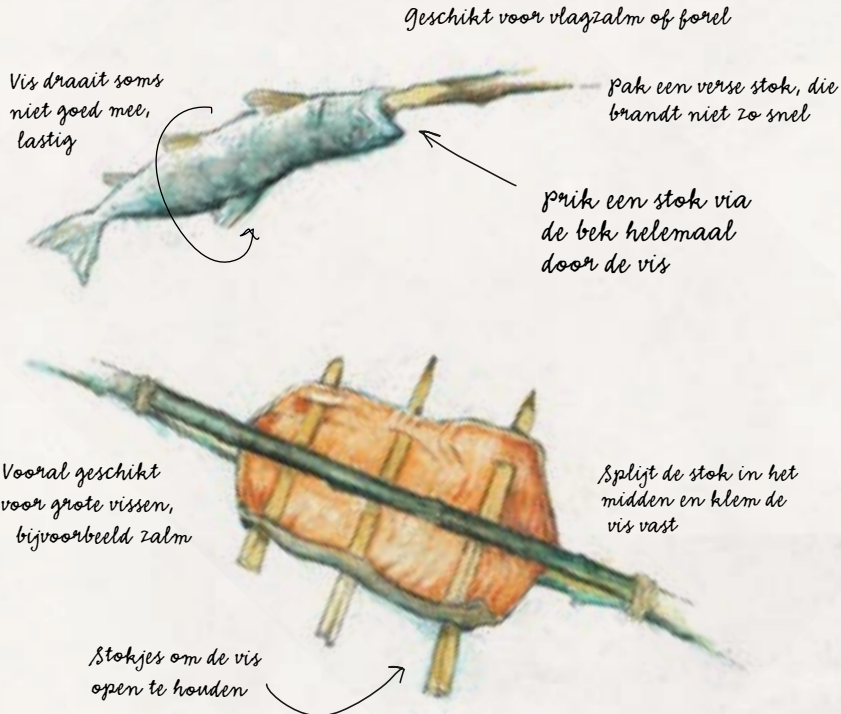 Geschikt voor vlagzalm of forel
Vis draait soms
niet goed mee,
lastig
Pak een verse stok, die
brandt niet zo snel
Prik een stok via
de bek helemaal
door de vis
Vooral geschikt
voor grote vissen,
bijvoorbeeld zalm
Splijt de stok in het
midden en klem de
vis vast
Stokjes om de vis
open te houden